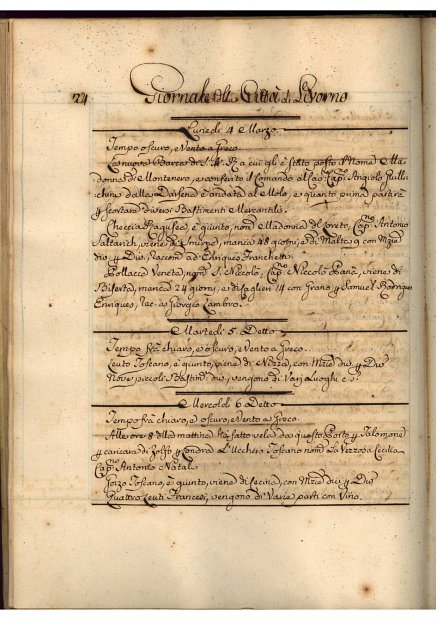 24 Giornale della Città di Livorno
Lunedi 4 Marzo.
Tempo oscuro, e Vento a Greco.
La nuova Barca di S. A. R. a cui gl' è stato posto il Nome Ma-
donna di Montenero, e conferito il Comando al Cav. Cap.no Angiolo
dalla Darsena è andata al Molo, e quanto prima partirà
p scortare diversi Bastimenti Mercantili.
Checcia Ragusea, è giunto, nom.e Madonna di Loreto, Cap.no Antonio
viene di Smirne, manca 48 giorni, e di Malta 9 con Mzie
div. p Div., racc. ad Enriques Franchetti
Pollacca Veneta, nom. S. Niccolò, Cap.no Niccolò viene di
Biserta, manca 24 giorni, e di Caglieri 14 con Grano p Samuel Rodrigues
Enriques, rac. a Giorgio Lambro.
Martedi 5 Detto
Tempo frà chiaro, e oscuro, e Vento a Greco.
Leuto Toscano, è giunto, viene di Nizza, con Mzie div. p Div.
Nove piccoli Bastim.ti div. vengono di Varj Luoghi c. s.
Mercoldi 6 Detto
Tempo frà chiaro, e oscuro, e Vento a Greco.
Alle ore 8 della mattina hà fatto vela da questo Porto p Palamone
p caricare di Zolfo p Londra L'Ucchero Toscano nom.o La Vezzosa Cecilia
Cap.no Antonio Natali
Gozzo Toscano, è giunto, viene di Cecina, con Mzie div. p Div.
Quattro Leuti Francesi, vengono di Varie parti con Vino.